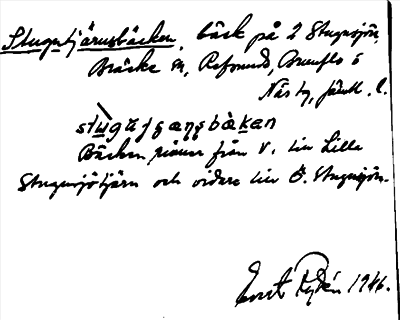 Stugutjärnsbäcken, bäck på 2 Stugusjön,
Bräcke sn, Refsund, Brunflo o
Näs tg, Jämtl. l.
Bäcken rinner från V. till Lilla
Stugusjötjärn och vidare till Ö. Stugusjön.
Ernst Rydén 1946.